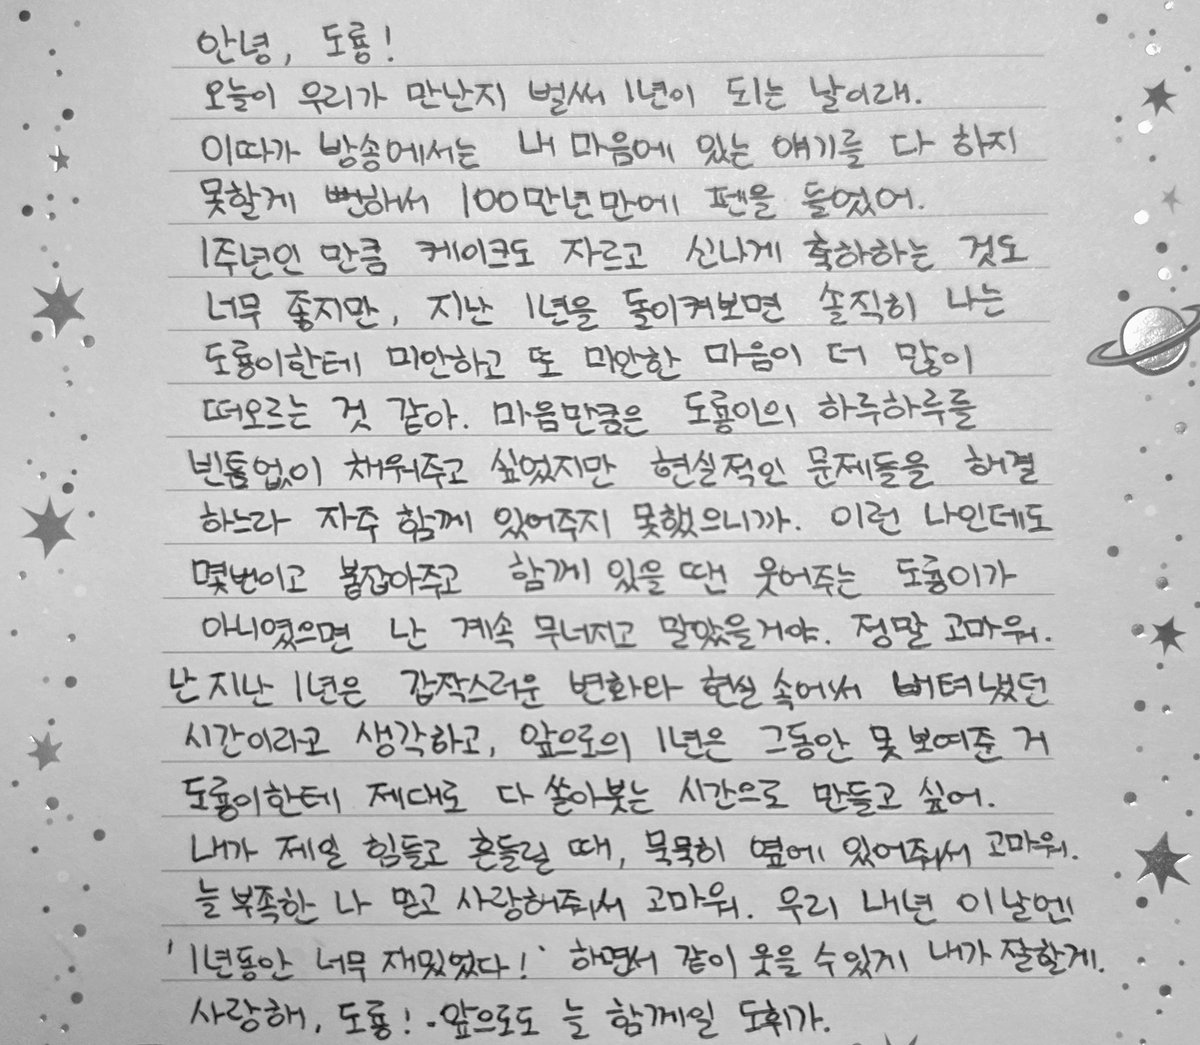 안녕, 도룡!
오늘이 우리가 만난지 벌써 1년이 되는 날이래.
이따가 방송에서는 내 마음에 있는 얘기를 다 하지
못할게 뻔해서 100만년만에 펜을 들었어.
1주년인 만큼 케이크도 자르고 신나게 축하하는 것도
너무 좋지만, 지난 1년을 돌이켜보면 솔직히 나는
도룡이한테 미안하고 또 미안한 마음이 더 많이
떠오르는 것 같아. 마음만큼은 도룡이의 하루하루를
빈틈없이 채워주고 싶었지만 현실적인 문제들을 해결
하느라 자주 함께 있어주지 못했으니까. 이런 나인데도
몇번이고 붙잡아주고 함께 있을 땐 웃어주는 도룡이가
아니였으면 난 계속 무너지고 말았을거야. 정말 고마워.
난 지난 1년은 갑작스러운 변화와 현실 속에서 버텨냈던
시간이라고 생각하고, 앞으로의 1년은 그동안 못 보여준 거
도룡이한테 제대로 다 쏟아붓는 시간으로 만들고 싶어.
내가 제일 힘들고 흔들릴 때, 묵묵히 옆에 있어줘서 고마워.
늘 부족한 나 믿고 사랑해줘서 고마워. 우리 내년 이날엔
'1년동안 너무 재밌었다!' 하면서 같이 웃을 수 있게 내가 잘할게.
사랑해, 도룡! 앞으로도 늘 함께일 도휘가.